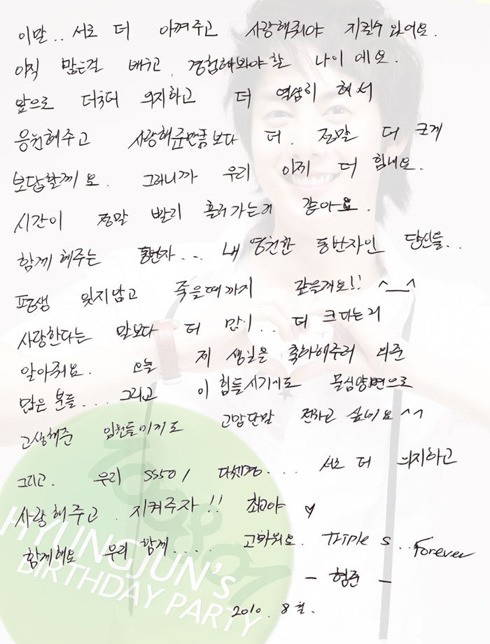 이말.. 서로 더 아껴주고 사랑해줘야 지킬수 있어요.
아직 많은걸 배우고, 경험해봐야할 나이에요.
앞으로 더욱더 의지하고 더 열심히 해서
응원해주고 사랑해준만큼보다 더. 정말 더 크게
보답할께요. 그러니까 우리 이제 더 힘내요.
시간이 정말 빨리 흘러가는거 같아요.
함께 해주는 동반자... 내 영원한 동반자인 당신들..
평생 잊지않고 죽을때까지 같을거요!! ^__^
사랑한다는 말보다 더 많이.. 더 크다는거
알아줘요. 오늘 제 생일을 축하해주러 와준
많은 분들... 그리고 이 힘든시기에도 물심양면으로
고생해준 임원들에게도 고맙단말 전하고 싶네요 ^^
그리고. 우리 SS501 다섯명.... 서로 더 의지하고
사랑해주고. 지켜주자!! 최고야 ♥
함께해요 우리 함께.... 고마워요. Triple S.. Forever
- 형준 -
2010. 8월.
HYUNGJUN's
BIRTHDAY PARTY